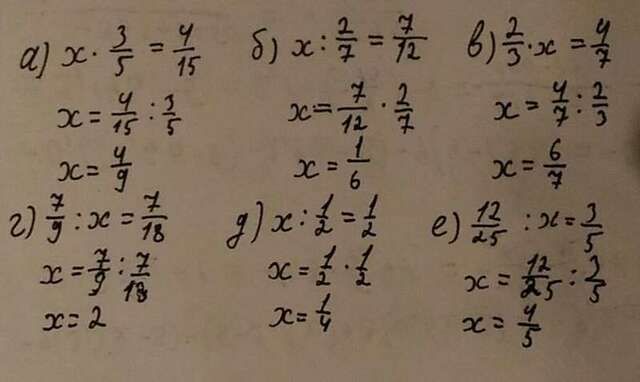 а) x · 3/5 = 4/15
x = 4/15 : 3/5
x = 4/9
б) x : 2/7 = 7/12
x = 7/12 · 2/7
x = 1/6
в) 2/3 · x = 4/7
x = 4/7 : 2/3
x = 6/7
г) 7/9 : x = 7/18
x = 7/9 : 7/18
x = 2
д) x : 1/2 = 1/2
x = 1/2 · 1/2
x = 1/4
е) 12/25 : x = 3/5
x = 12/25 : 3/5
x = 4/5